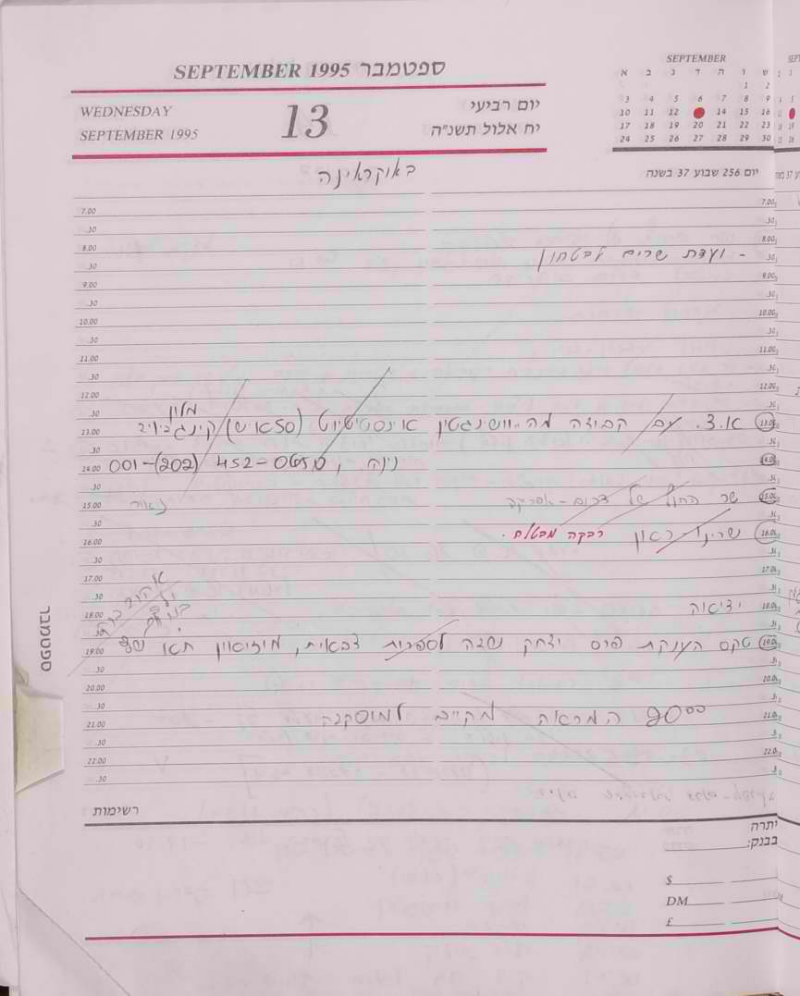 SEPTEMBER 1995 ספטמבר
WEDNESDAY
SEPTEMBER 1995
13
יום רביעי
יח אלול תשנ"ה
SEPTEMBER
א ב ג ד ה ו ש
1 2
3 4 5 6 7 8 9
10 11 12 14 15 16
17 18 19 20 21 22 23
24 25 26 27 28 29 30
יום 256 שבוע 37 בשנה
באוקראינה
7.00
.30
8.00
- ועדת שרים לבטחון
.30
9.00
.30
10.00
.30
11.00
.30
12.00
.30
מלון
13.00 א.צ. עם קבוצה מה"וושינגטון אינסטיטיוט (50 איש) קינג דיויד
.30
14.00 נינה, 001-(202) 452-0650
.30
15.00 שר החוץ של דרום-אפריקה
.30
16.00 רבקה מבטלת.
.30
17.00
.30
18.00 יציאה
.30
19.00 טקס הענקת פרס יצחק שדה לספרות צבאית, מוזיאון תא
.30
20.00
.30
21.00 20:00 המראה מקייב למוסקבה
.30
22.00
.30
ספטמבר
רשימות
יתרה
בבנק:
$
DM
£